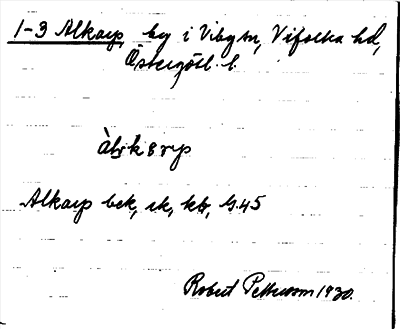 1-3 Alkarp, by i Viby sn, Vifolka hd,
Östergötl. l.
Alkarp bek, sk, kb, G.45
Robert Pettersson 1930.